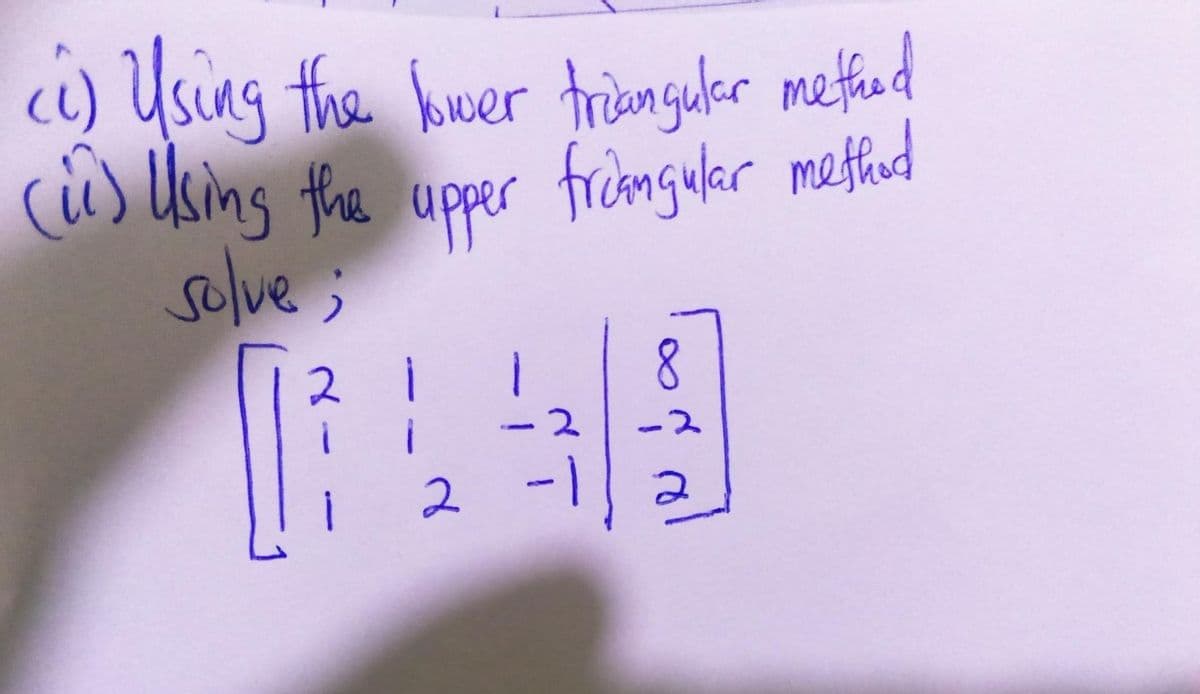 (i) Using the lower triangular method
(ii) Using the upper triangular method
solve ;
2 1 1 | 8
1 1 -2 | -2
1 2 -1 | 2